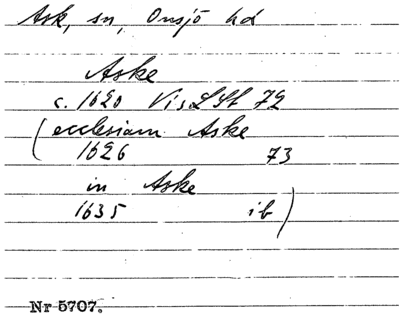 Ask, sn, Onsjö hd
Aske
c. 1620 Vis LSt 72
(ecclesiam Aske
1626 73
in Aske
1635 ib)
Nr 5707.